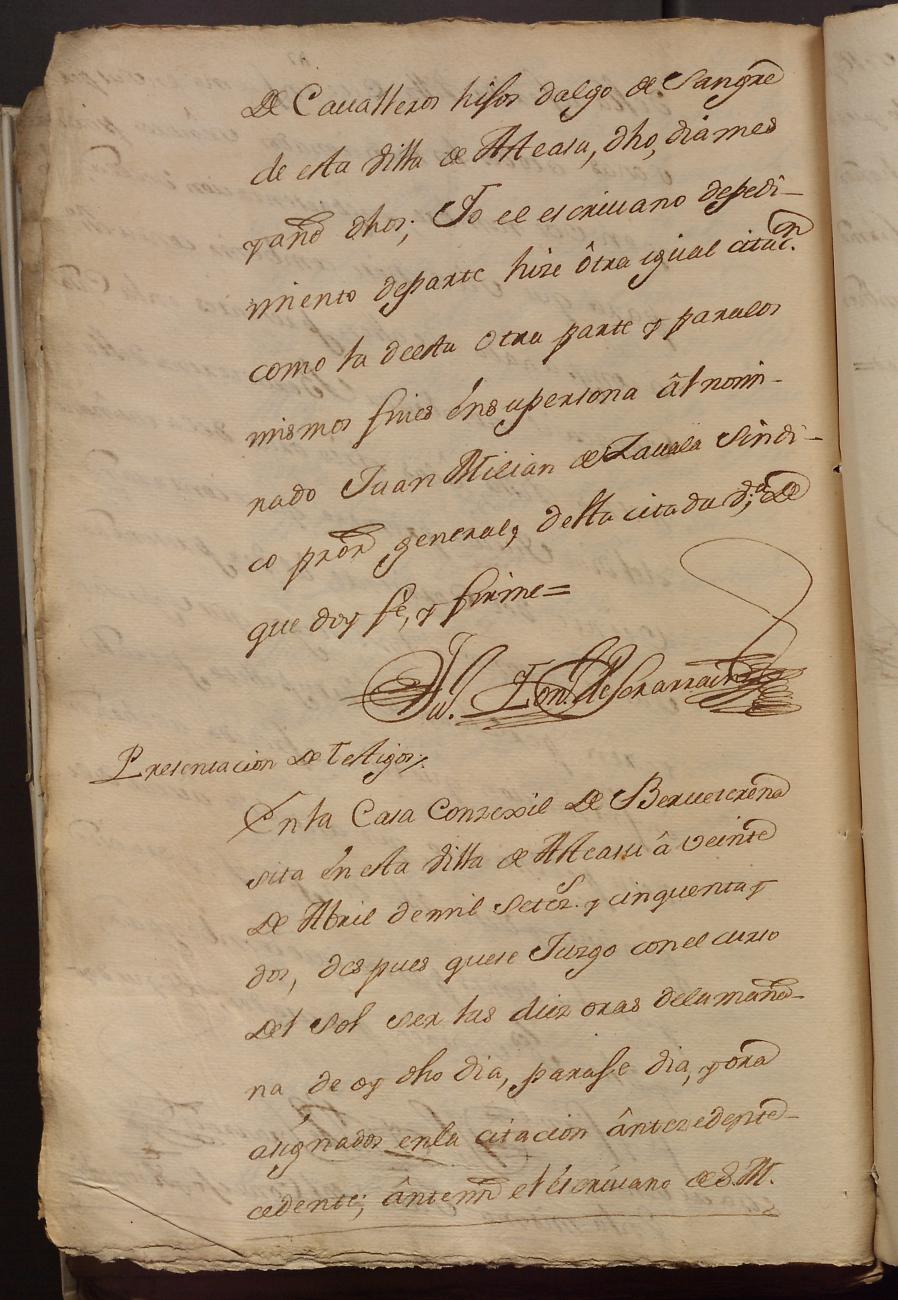 De Cavalleros hijos dalgo de Sangre
de esta villa de Alcasu, dho, dia mes
y año dhos; Yo el escrivano de pedi-
miento de parte hize ôtra igual citac.on
como la de esta otra parte y para los
mismos fines én su persona âl nomi-
nado Juan Milian de Zavala Sindi-
co pror general, de esta citada v.a De
que doy fe, y firme=
de Sorarrain
Presentacion De Testigos,
En la Casa Conzexil De Berueterena
sita én esta villa de Alcasu â veinte
De Abril de mil Setezs. y cinquenta y
dos, despues que se Juzgo con el curso
Del Sol ser las diez oras de la maña-
na de oy dho dia, para este dia, y ora
asignados en la citacion ântezedente-
cedente; ânte mi el éscrivano de S.M.